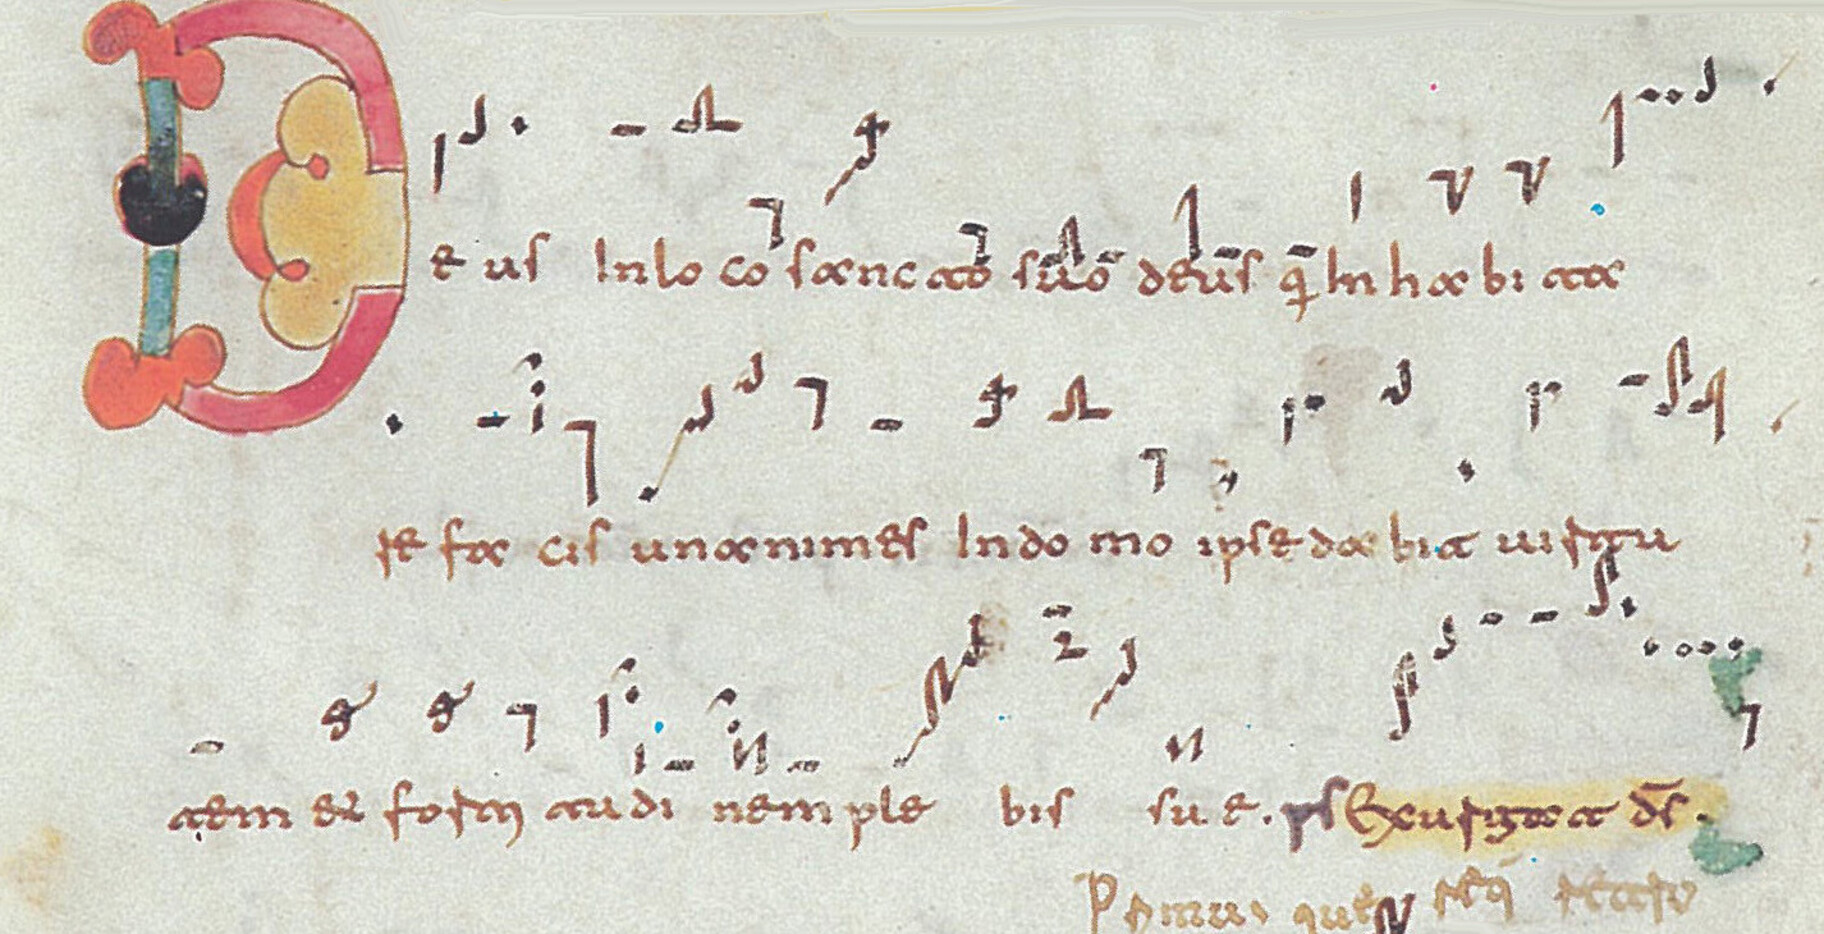 Deus In loco sancto suo deus q̄ Inhabita
re facis unanimes In domo ipse dabit uirtu
tem et fortitudinem plebis sue. ps Exurgat d̄s.